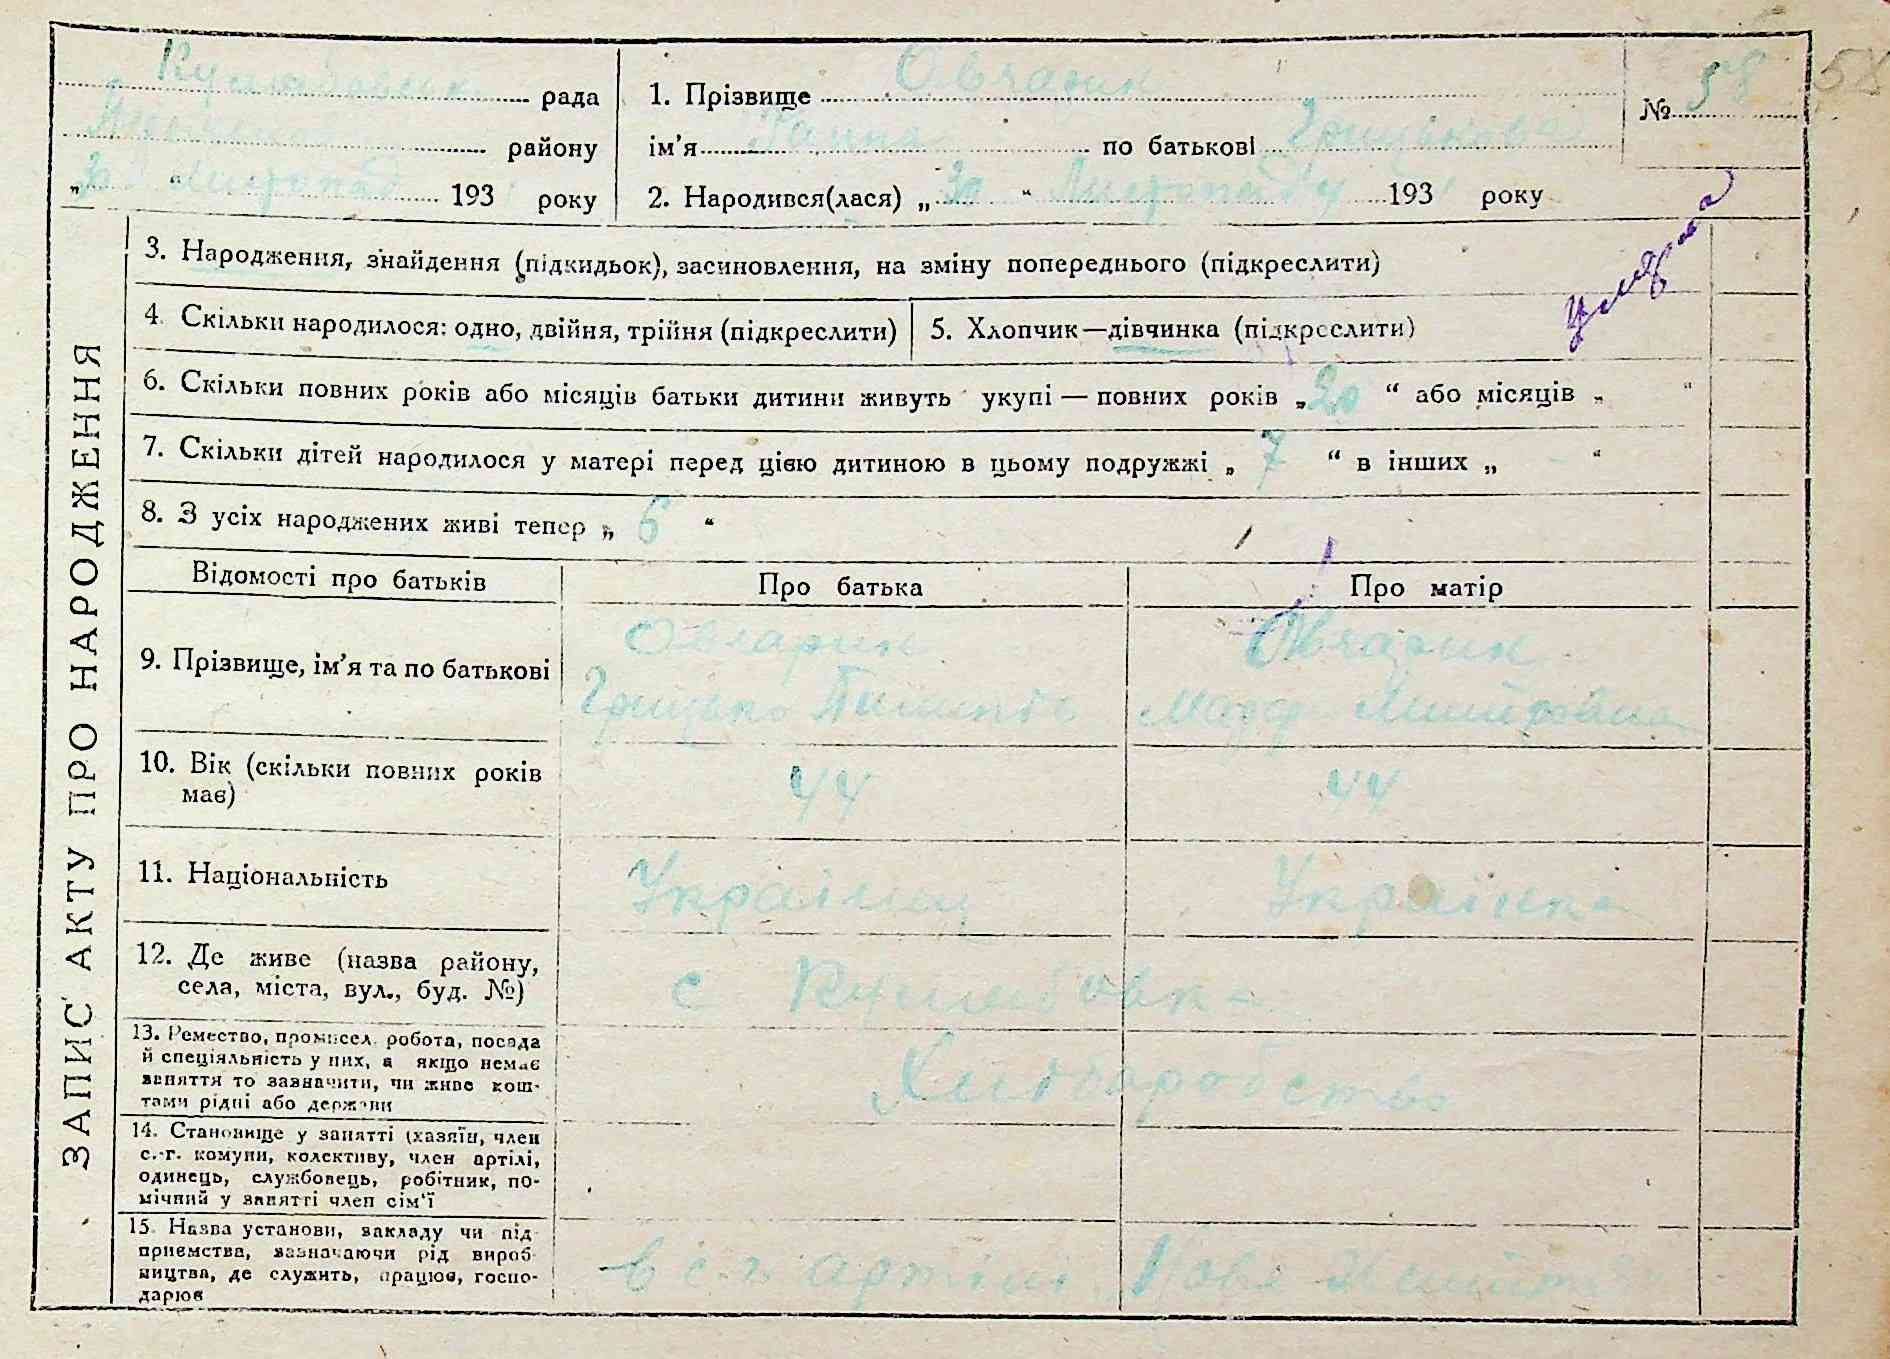 рада
району
„30“ Листопад 193 року
1. Прізвище Овчарик
ім’я Ганна по батькові Грицькова
2. Народився(лася) „30“ Листопада 193 року
№ 58
58
умерла
ЗАПИС АКТУ ПРО НАРОДЖЕННЯ
3. Народження, знайдення (підкидьок), засиновлення, на зміну попереднього (підкреслити)
4. Скільки народилося: одно, двійня, трійня (підкреслити)
5. Хлопчик—дівчинка (підкреслити)
6. Скільки повних років або місяців батьки дитини живуть укупі — повних років „20“ або місяців „ “
7. Скільки дітей народилося у матері перед цією дитиною в цьому подружжі „7“ в інших „ - “
8. З усіх народжених живі тепер „6“
Відомості про батьків
Про батька
Про матір
9. Прізвище, ім’я та по батькові
Овчарик
Грицько
Овчарик
10. Вік (скільки повних років
має)
44
44
11. Національність
Українец
Українка
12. Де живе (назва району,
села, міста, вул., буд. №)
с
13. Ремество, промисел, робота, посада
й спеціяльність у них, а якщо немає
заняття то зазначити, чи живе кош-
тами рідні або держави
Хліборобство
14. Становище у занятті (хазяїн, член
с.-г. комуни, колективу, член артілі,
одинець, службовець, робітник, по-
мічний у занятті член сім’ї
15. Назва установи, закладу чи під
приємства, зазначаючи рід вироб-
ництва, де служить, працює, госпо-
дарює
в с г артілі Нове